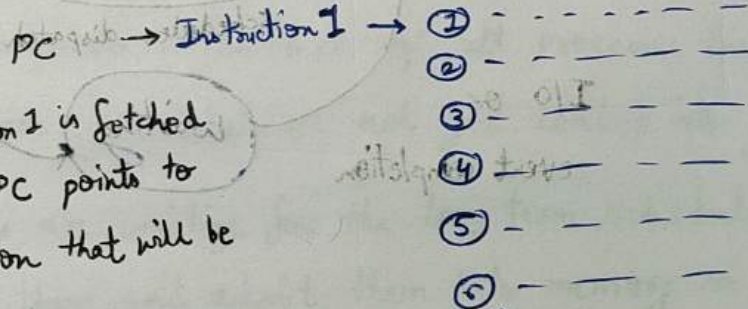 PC → Instruction 1 → ① - - - - - - -
② - - - - - -
③ - - - -
④ - - - -
⑤ - - - -
⑥ - - - -
1 is fetched
PC points to
on that will be